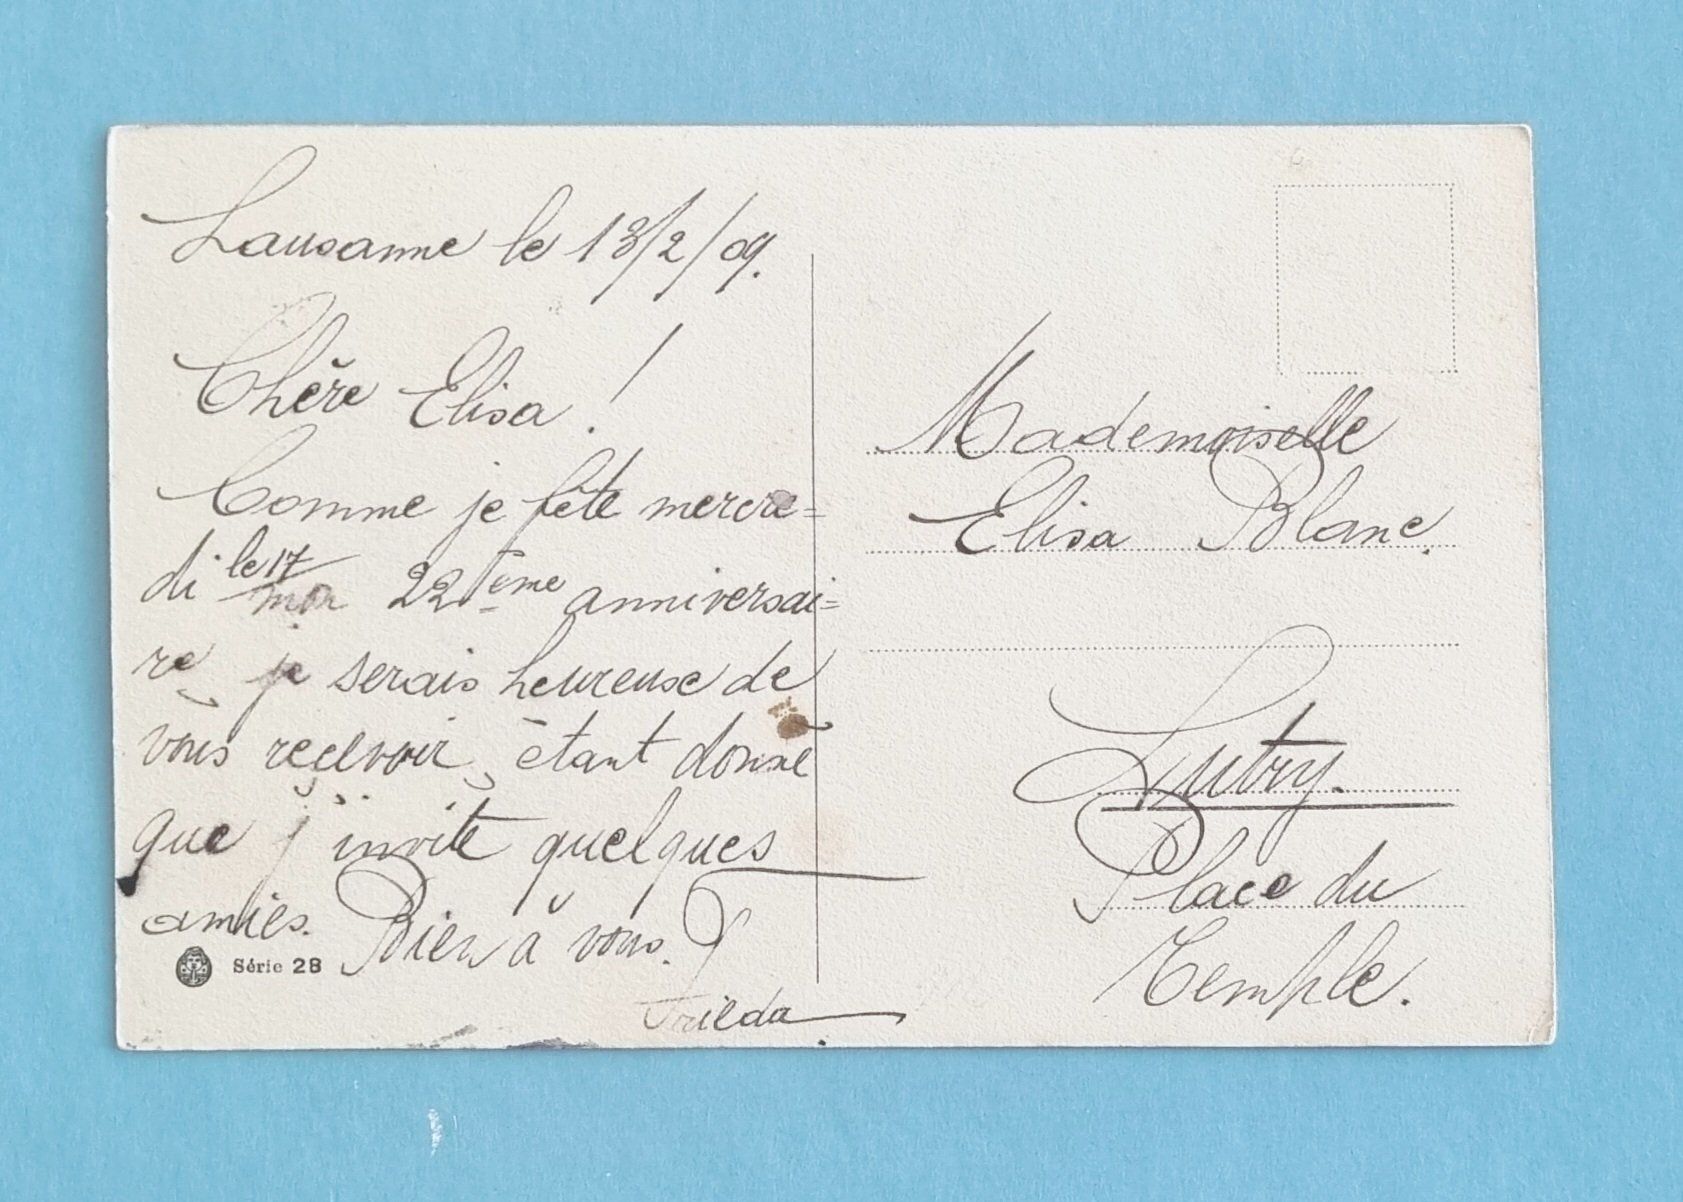 Lausanne le 13/2/09.
Chère Elisa !
Comme je fête mercre=
di le 17 mon 22ème anniversai=
re, je serais heureuse de
vous recevoir, étant donné
que j'invite quelques
amies. Bien à vous.
Frilda
Série 28
Mademoiselle
Elisa Blanc.
Lutry.
Place du
Temple.